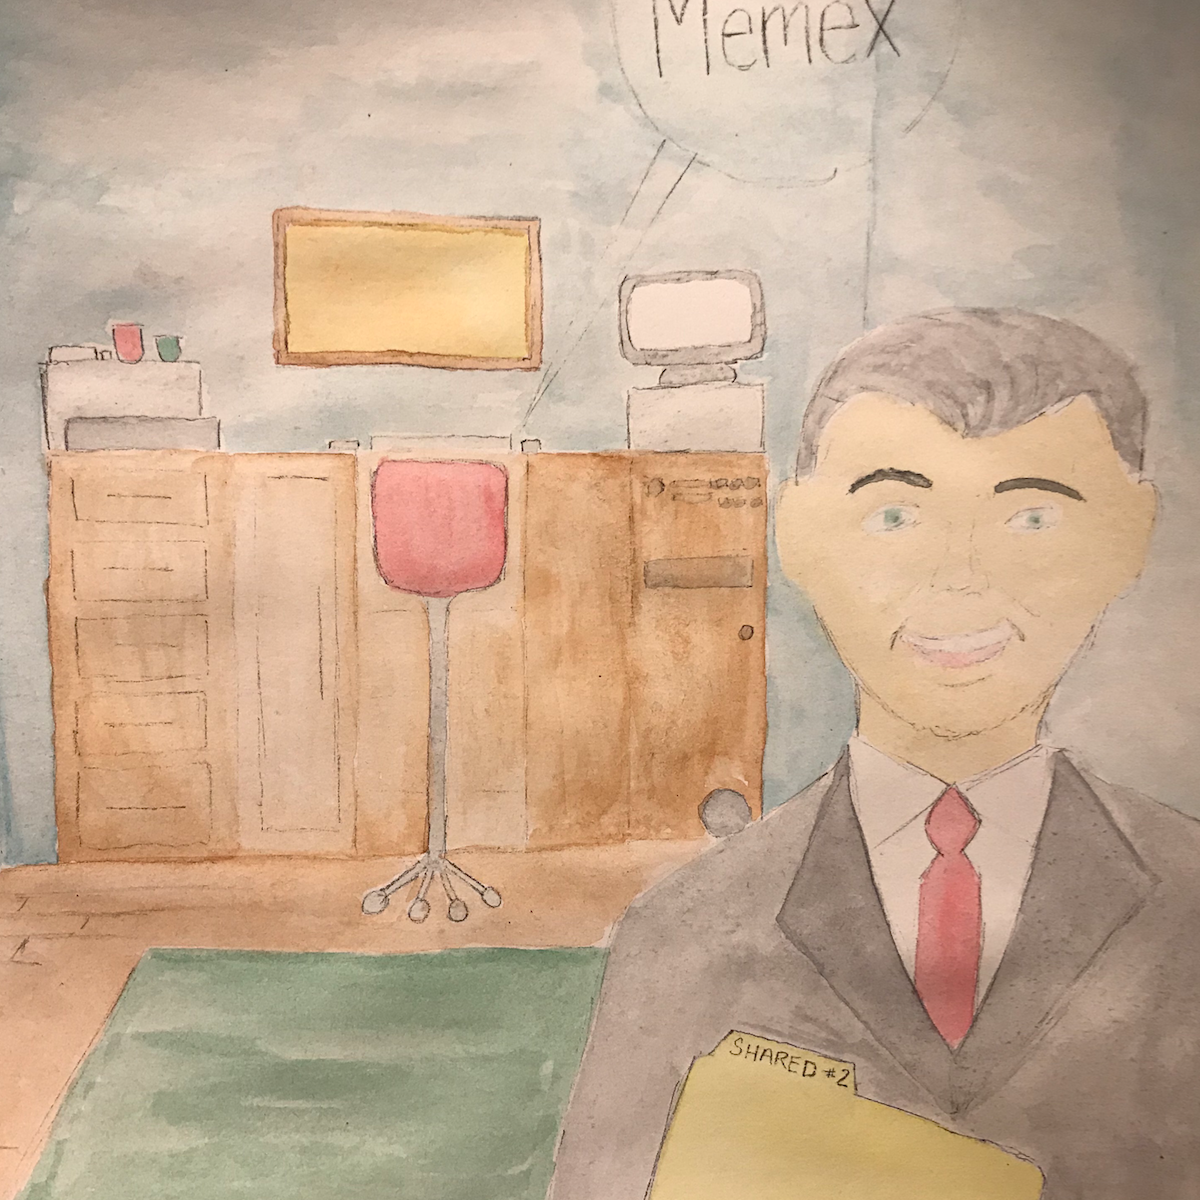 Memex
SHARED #2